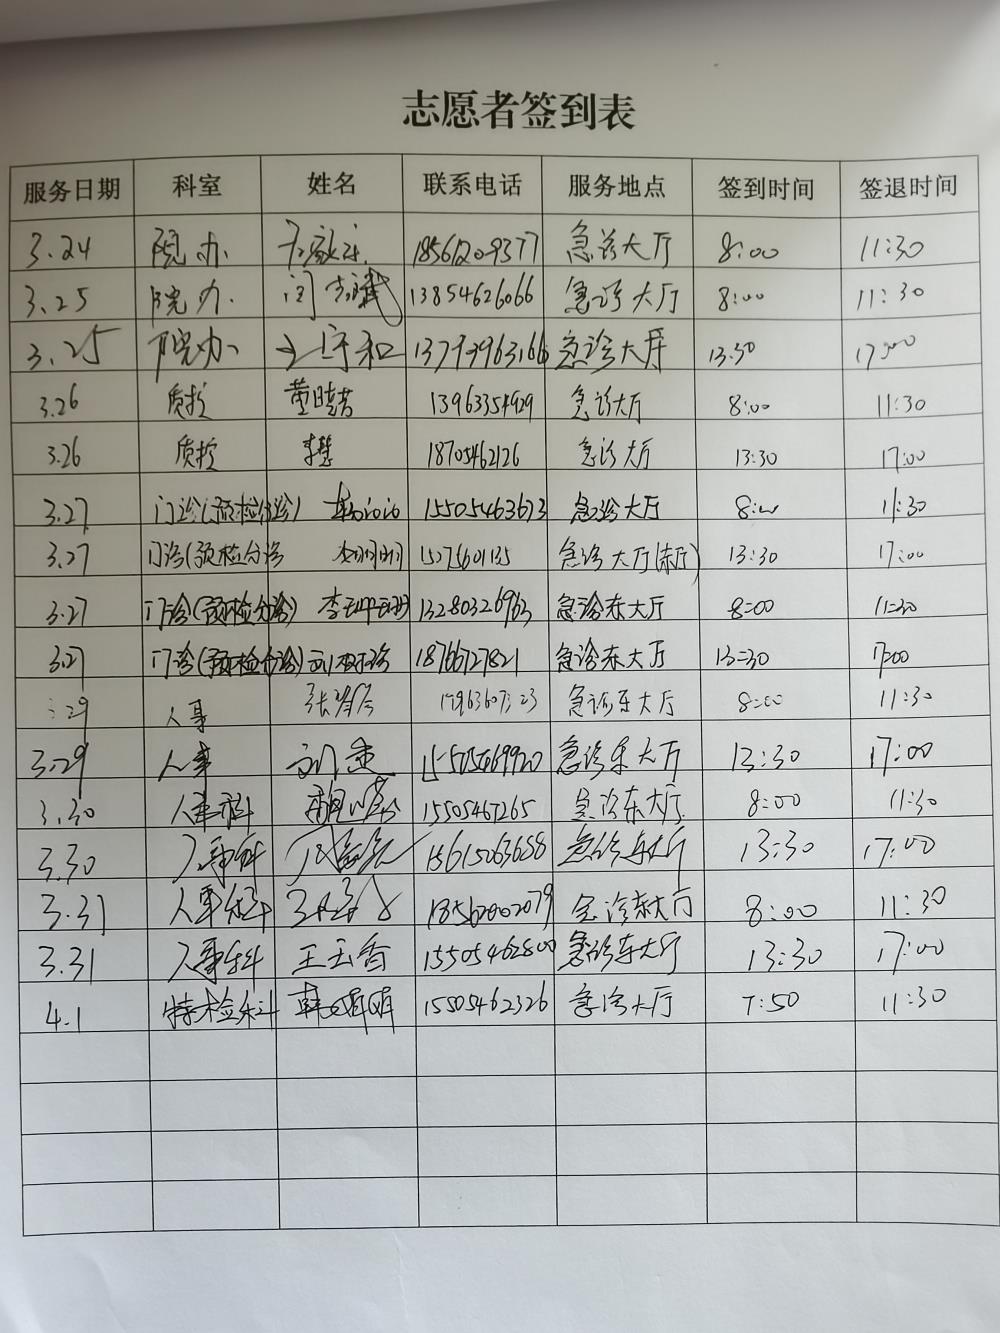 志愿者签到表
服务日期 科室 姓名 联系电话 服务地点 签到时间 签退时间
3.24 院办 18561209377 急诊大厅 8:00 11:30
3.25 院办 13854626066 急诊大厅 8:00 11:30
3.25 院办 王守和 13793963166 急诊大厅 13:30 17:00
3.26 质控 13963354929 急诊大厅 8:00 11:30
3.26 质控 李慧 18705462126 急诊大厅 13:30 17:00
3.27 门诊(预检分诊) 15505463673 急诊大厅 8:00 11:30
3.27 门诊(预检分诊 15275601135 急诊大厅(东厅) 13:30 17:00
3.27 门诊(预检分诊) 李珊珊 13280326963 急诊东大厅 8:00 11:30
3.27 门诊(预检分诊) 18766727821 急诊东大厅 13:30 17:00
3.29 人事 急诊东大厅 8:00 11:30
3.29 人事 急诊东大厅 13:30 17:00
3.30 人事科 15505467265 急诊东大厅 8:00 11:30
3.30 人事科 15615063688 急诊东大厅 13:30 17:00
3.31 人事科 18562002079 急诊东大厅 8:00 11:30
3.31 人事科 王玉香 15505462800 急诊东大厅 13:30 17:00
4.1 特检科 韩萌萌 15505462326 急诊大厅 7:50 11:30